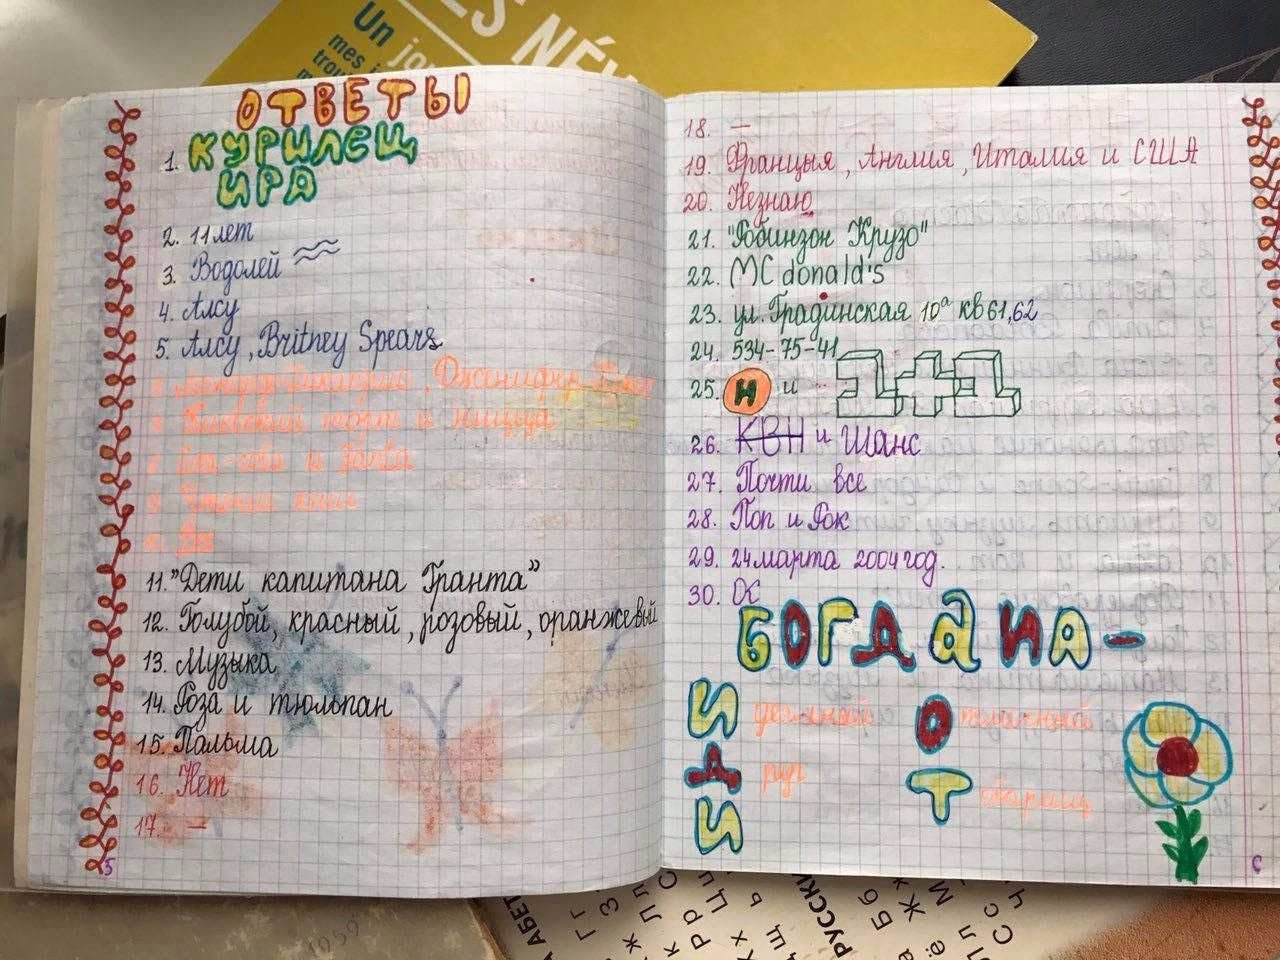 ES NÉV
Un jou
mes i
trou
ОТВЕТЫ
1. КУРИЛЕЩ
ИРА
2. 11 лет
3. Водолей
4. Алсу
5. Алсу, Britney Spears
Леонардо Дикаприо, Дженифер
Киевский торт и пицца
Coca-cola и Fanta
9. Чтение книг
10. Да
11. "Дети капитана Гранта"
12. Голубой, красный, розовый, оранжевый
13. Музыка
14. Роза и тюльпан
15. Пальма
16. Нет
17. —
5
18. —
19. Францыя, Англия, Италия и США
20. Незнаю
21. "Робинзон Крузо"
22. MC donald's
23. ул. Градинская 10а кв 61,62
24. 534-75-41
25. Н и 1+1
26. КВН и Шанс
27. Почти все
28. Поп и Рок
29. 24 марта 2004 год.
30. ОС
БОГДАНА-
отличный
руг
Товарищ
1059
АБЕТ
РУССКИ